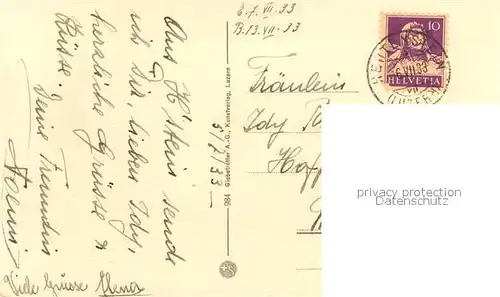 E. 7. VII. 33
B. 13. VII - 33
Aus H'stein sende
ich Dir lieben Idy,
herzliche Grüsse &
Küsse.
Deine Freundin
Viele Grüsse
5/7/33
984 Globetrotter A.-G., Kunstverlag, Luzern
10
HELVETIA
(LUZERN)
Fräulein
Idy
privacy protection
Datenschutz